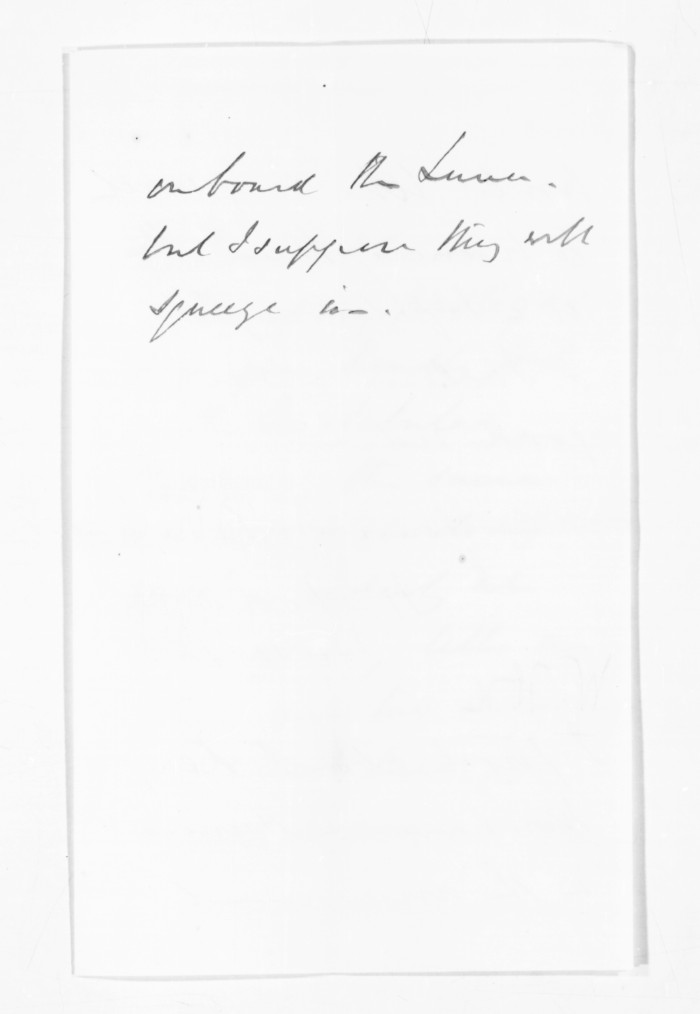 on board the Luna.
but I suppose they will
squeeze in.